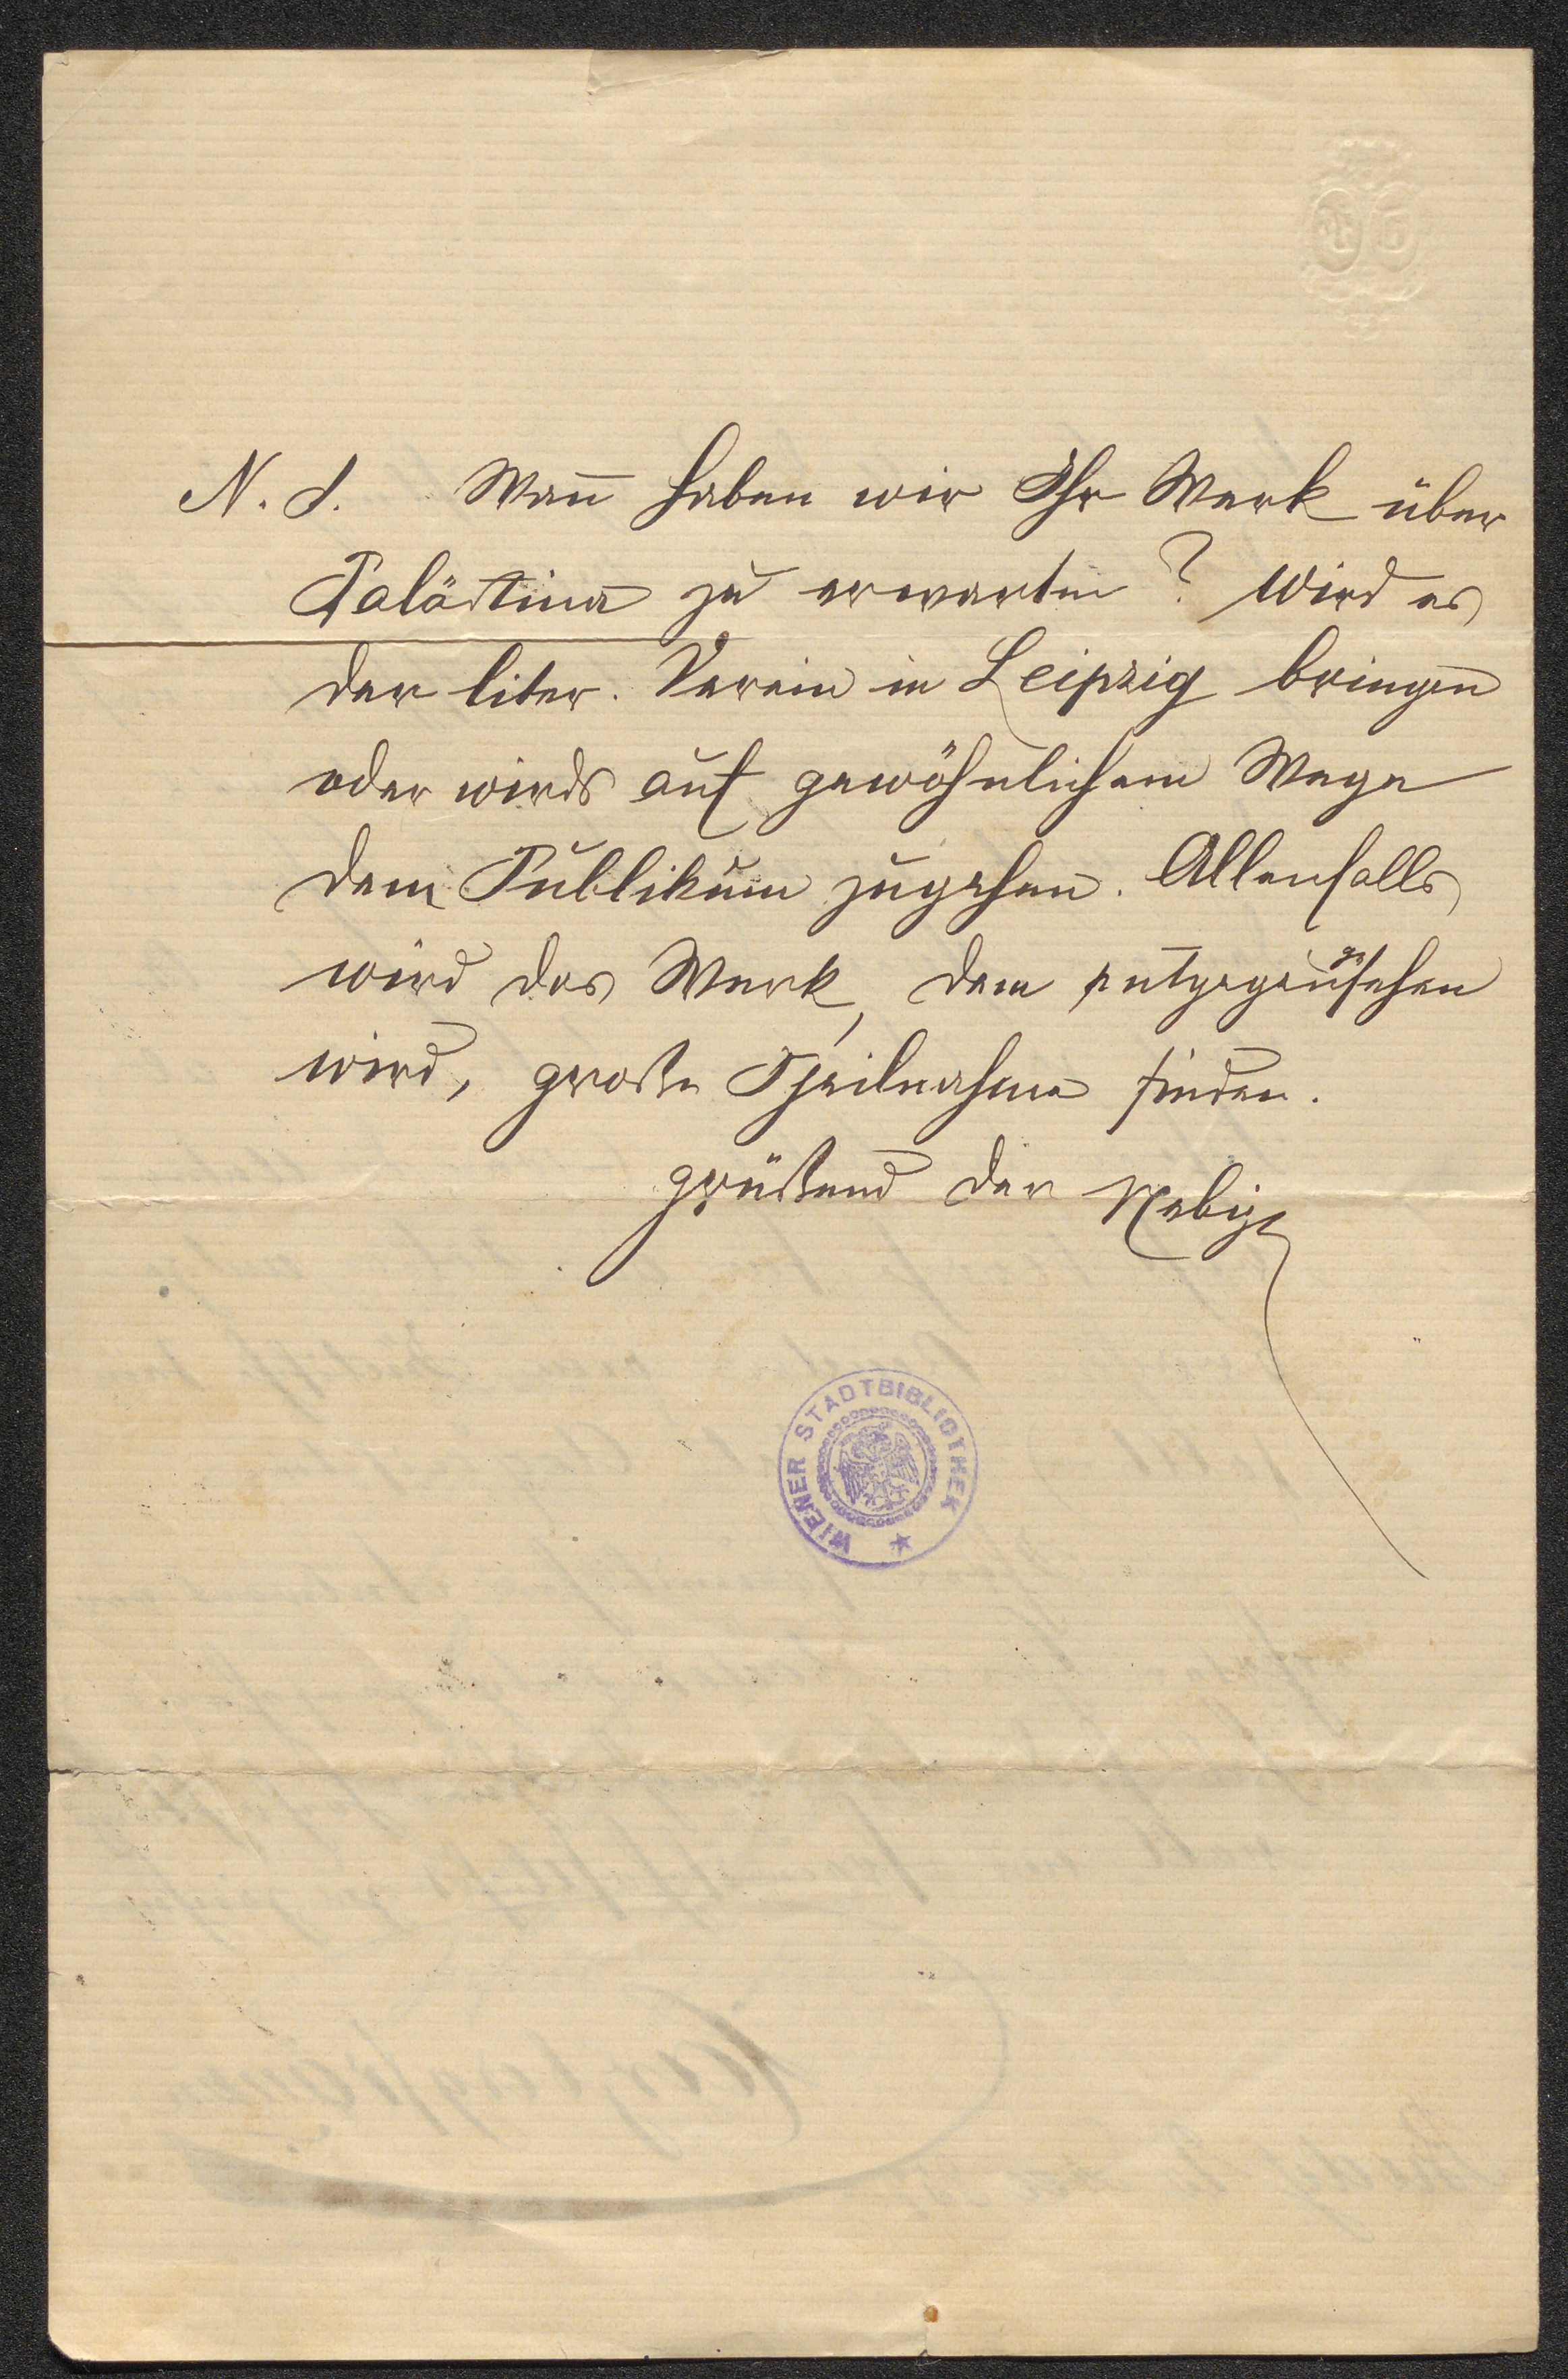 N. S. Wann haben wir Ihr Werk über
Palästina zu erwarten? Wird es
der liter. Verein in Leipzig bringen
oder wirds auf gewöhnlichem Wege
dem Publikum zugehen. Allenfalls
wird das Werk, dem entgegengesehen
wird, große Theilnahme finden.
grüßend der Obige
WIENER STADTBIBLIOTHEK